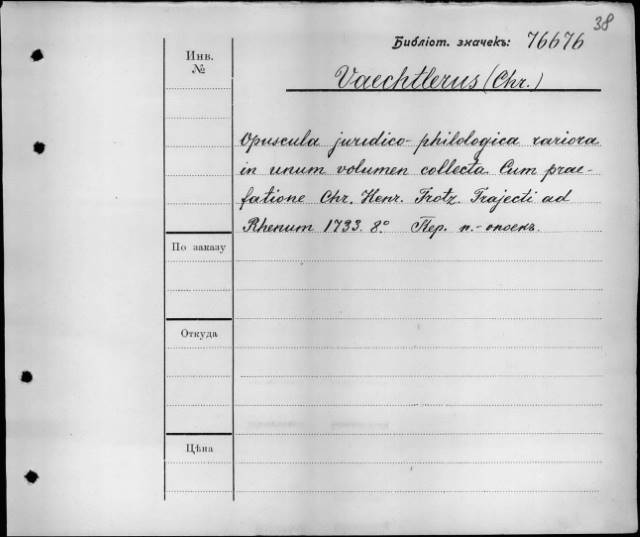 38
Библіот. значекъ: 76676
Инв.
№
Vaechtlerus (Chr.)
Opuscula juridico-philologica rariora
in unum volumen collecta. Cum prae-
fatione Chr. Henr. Trotz. Trajecti ad
Rhenum 1733. 8.° Пер. п.-опоекъ.
По заказу
Откуда
Цѣна